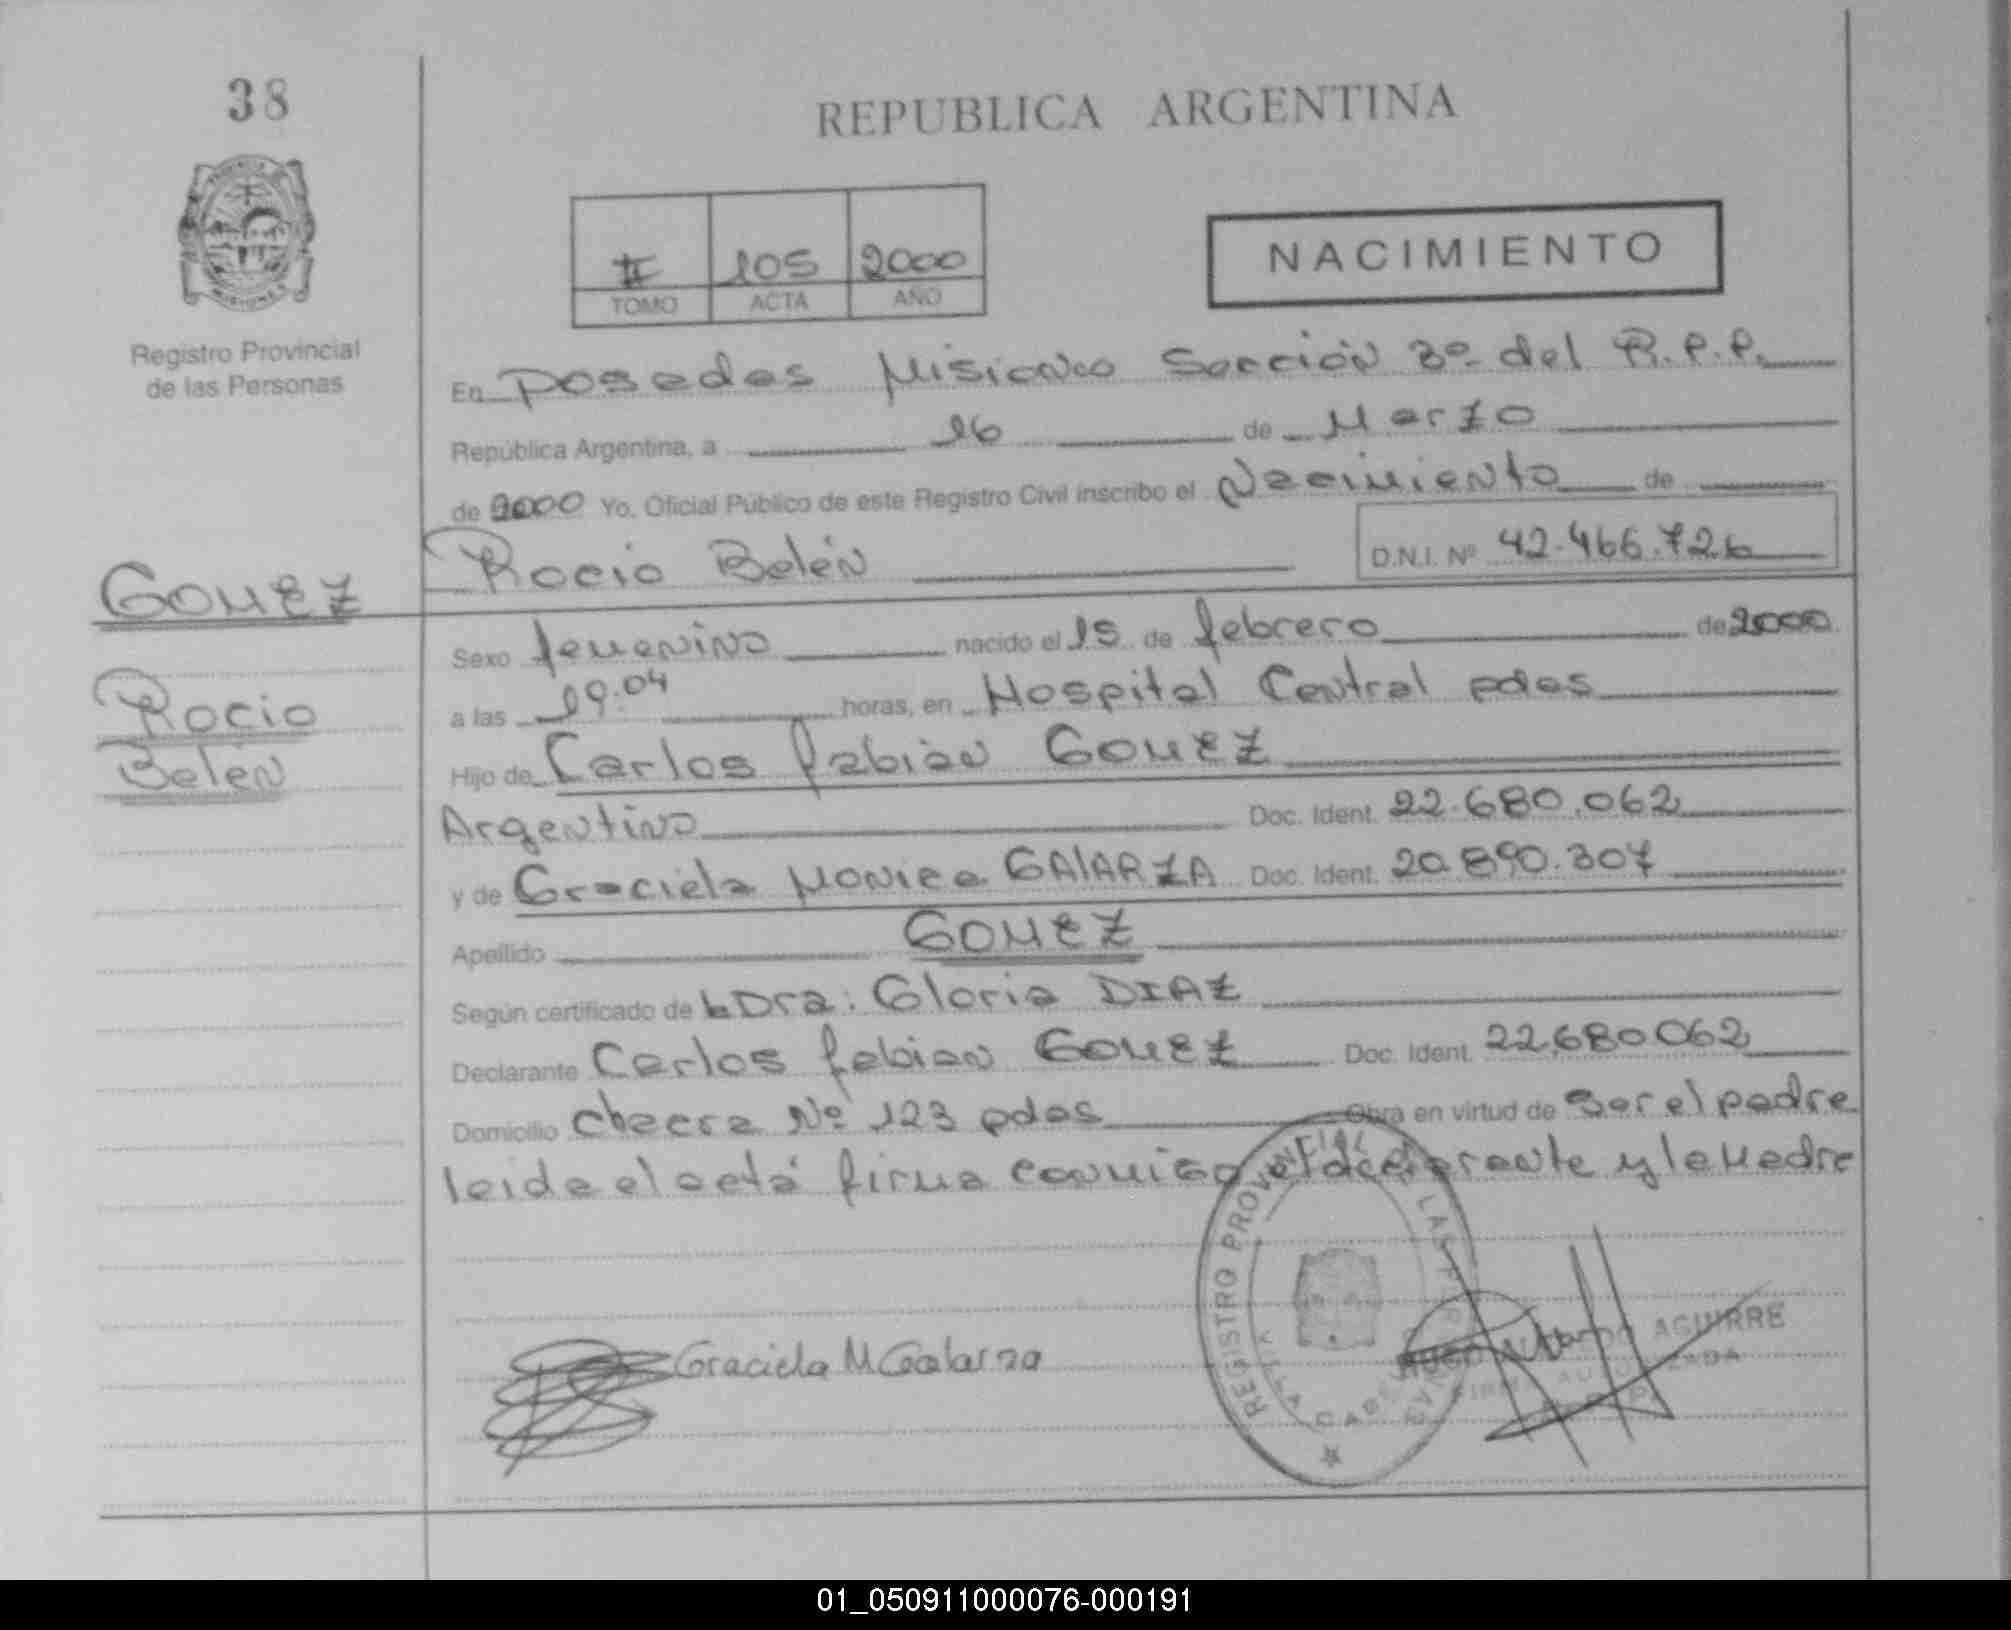 38
REPUBLICA ARGENTINA
PROVINCIA
MISIONES
II 105 2000
TOMO ACTA AÑO
NACIMIENTO
Registro Provincial
de las Personas
En Posadas Misiones Sección 3º del R.P.P.
República Argentina, a 16 de Marzo
de 2000 Yo, Oficial Público de este Registro Civil inscribo el Nacimiento de
Rocio Belén D.N.I. Nº 42.466.726
GOMEZ
Rocio
Belén
Sexo femenino nacido el 15 de febrero de 2000
a las 19:04 horas, en Hospital Central pdas
Hijo de Carlos fabián GOMEZ
Argentino Doc. Ident. 22.680.062
y de Graciela Monica GAlARZA Doc. Ident. 20.890.307
Apellido GOMEZ
Según certificado de la Dra: Gloria DIAZ
Declarante Carlos fabian GOMEZ Doc. Ident. 22.680.062
Domicilio chacra Nº 123 pdas Obra en virtud de ser el padre
leida el acta firma conmigo el declarante y la Madre
REGISTRO PROVINCIAL LAS
VILLA CABELLO
Graciela M Galarza
HUGO AGUIRRE
FIRMA AUTORIZADA
R.P.P.
01_050911000076-000191